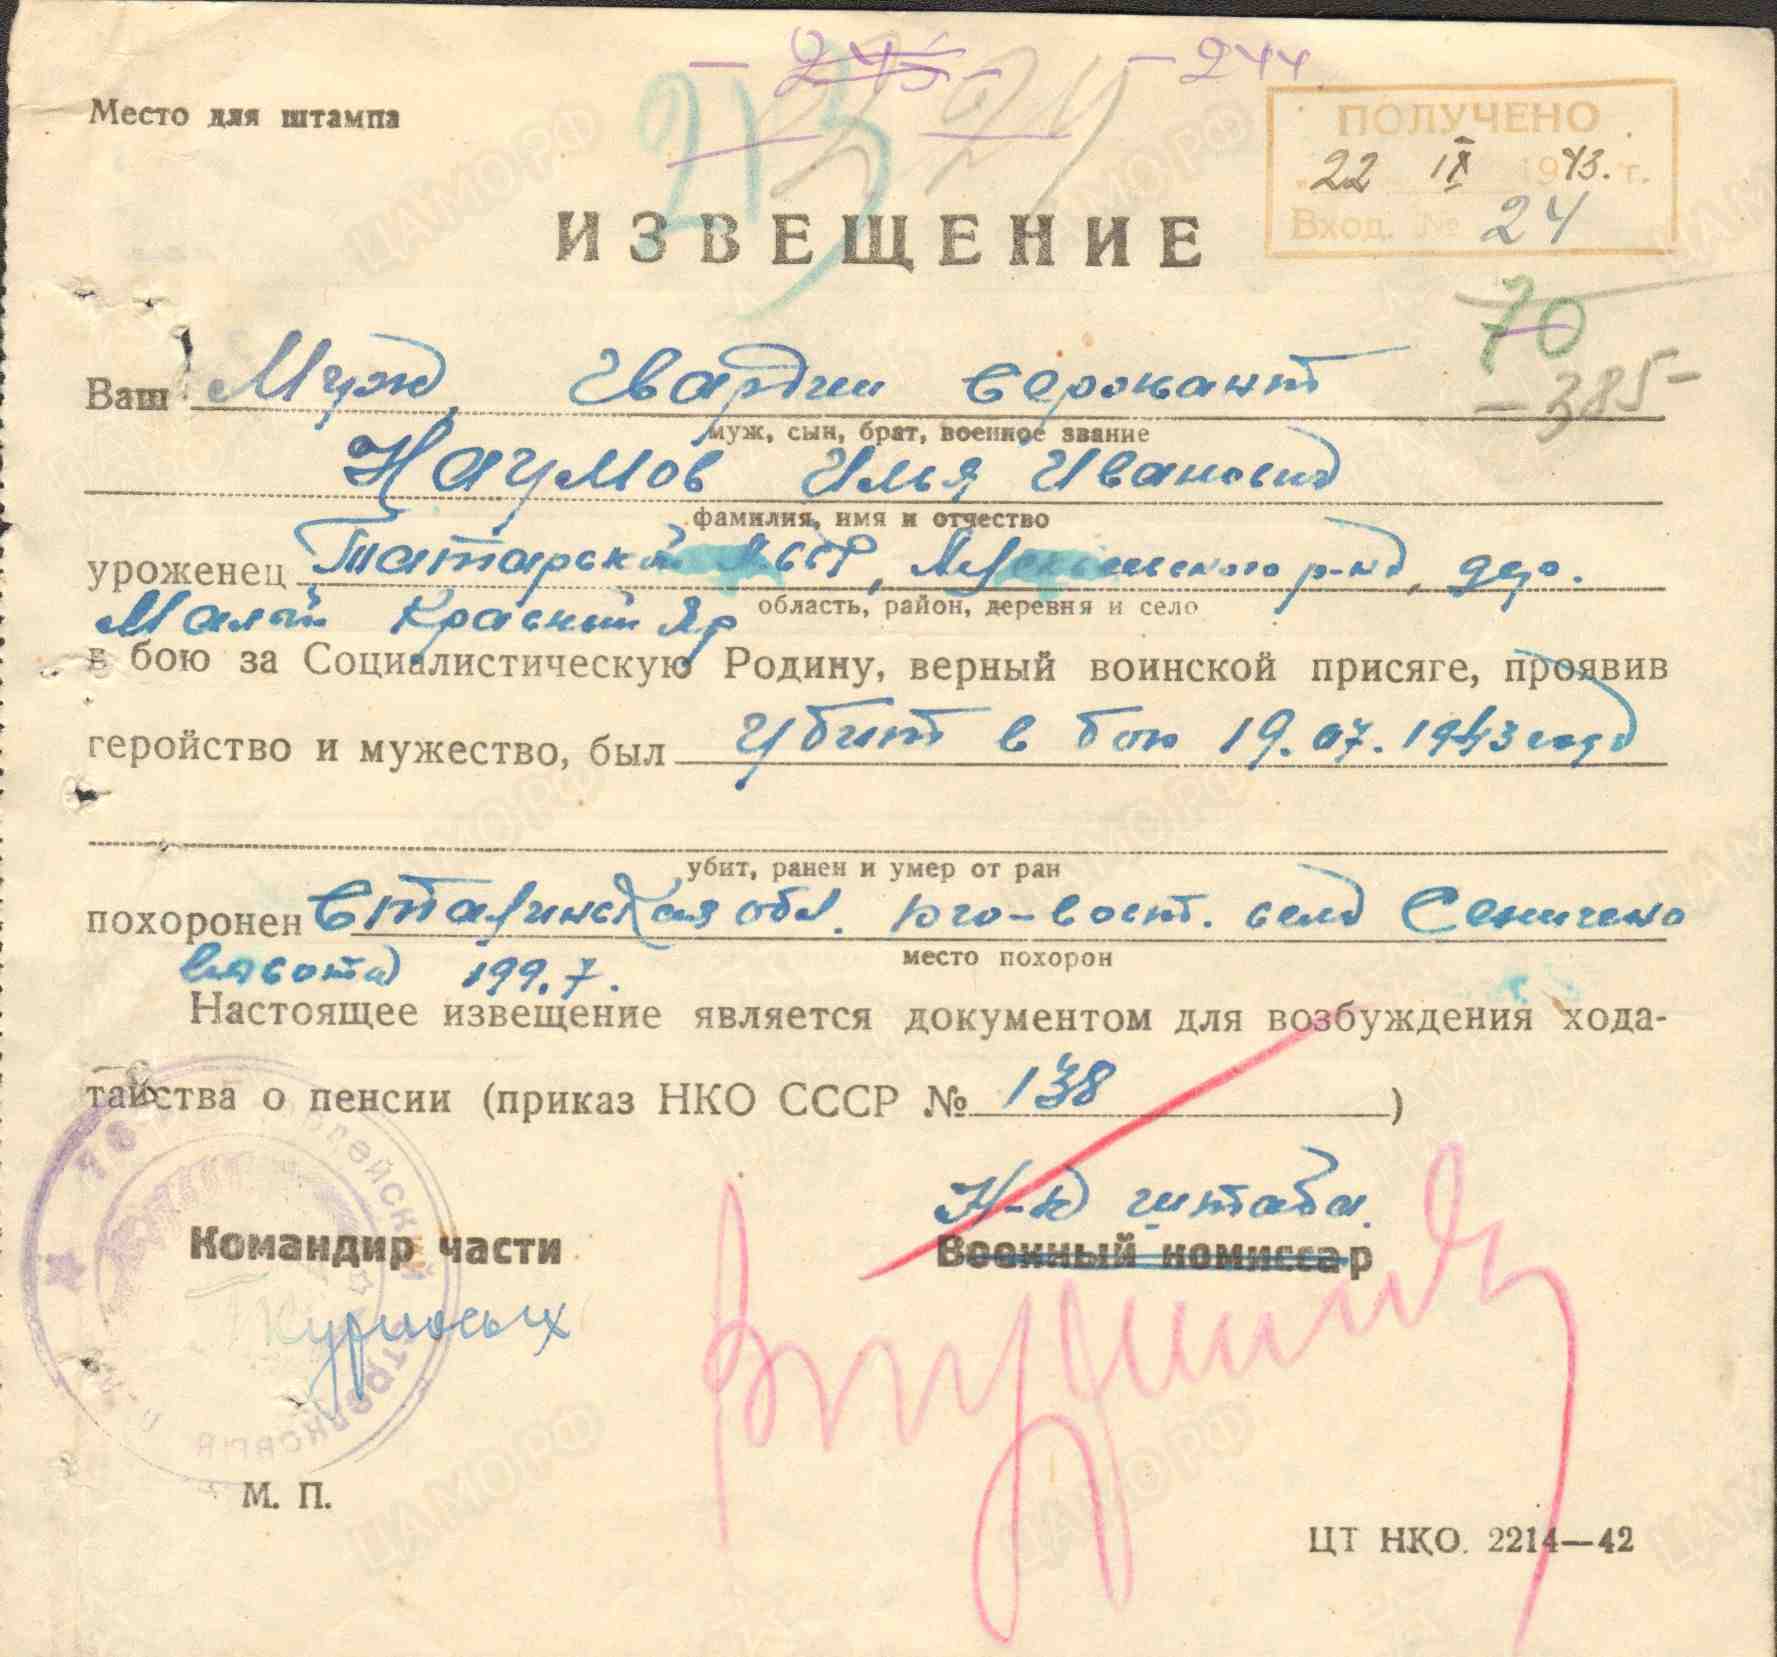 - 245 - - 244
213
Место для штампа
ПОЛУЧЕНО
22 IX 1943. г.
Вход. № 24
ИЗВЕЩЕНИЕ
70
- 385 -
Ваш Муж, Гвардии сержант
муж, сын, брат, военное звание
Наумов Илья Иванович
фамилия, имя и отчество
уроженец Татарской АССР, р-на, дер.
область, район, деревня и село
Малый Красный Яр
в бою за Социалистическую Родину, верный воинской присяге, проявив
геройство и мужество, был убит в бою 19.07.1943 года
убит, ранен и умер от ран
похоронен Сталинская обл. юго-вост. села
место похорон
высота 199.7.
Настоящее извещение является документом для возбуждения хода-
тайства о пенсии (приказ НКО СССР № 138 )
Н-к штаба
Командир части Военный комиссар
М. П.
ЦТ НКО. 2214—42
ЦАМО.РФ